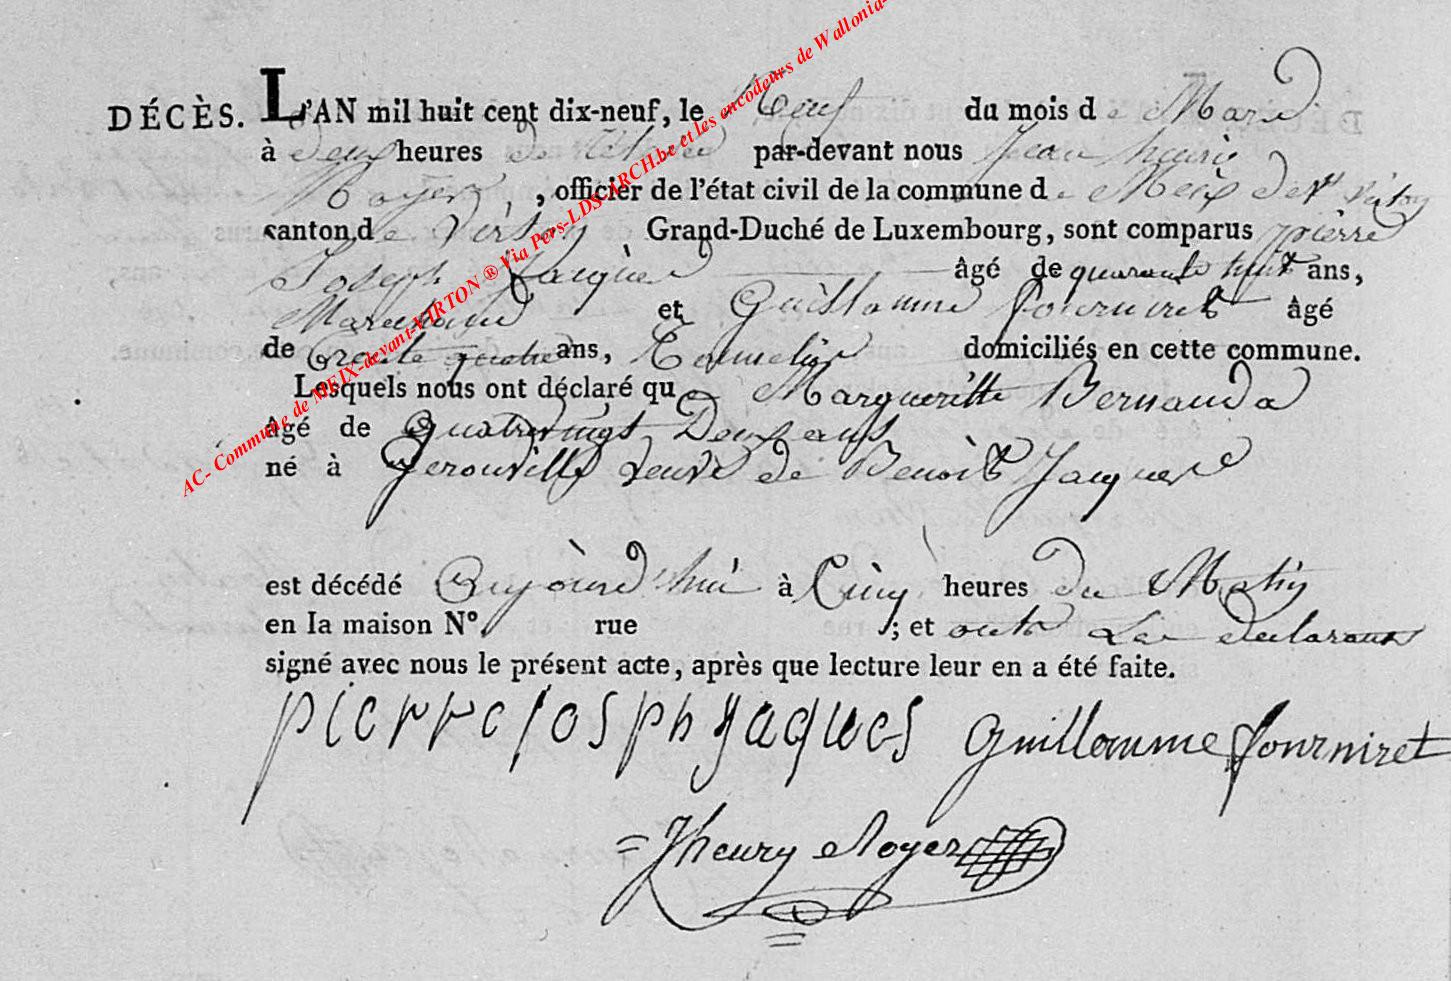 DÉCÈS. L'AN mil huit cent dix-neuf, le Neuf du mois de Mars
à deux heures de par-devant nous Jean henri
Royer, officier de l'état civil de la commune de Meix devt Virton
canton de Virton Grand-Duché de Luxembourg, sont comparus pierre
Joseph Jacques âgé de quarante huit ans,
Marechand et Guillaume fourniret âgé
de trente quatre ans, domiciliés en cette commune.
Lesquels nous ont déclaré que Margueritte Bernauda
âgé de quatrevingt Deux ans
né à Gerouville veuve de Benoit Jacques
est décédé aujourd'hui à Cinq heures du Matin
en la maison N° rue ; et ont Les declarants
signé avec nous le présent acte, après que lecture leur en a été faite.
pierre josph jaques Guillaumme fourniret
= Jhenry Royer
AC- Commune de MEIX-devant-VIRTON ® Via Pers-LDS-ARCH.be et les encodeurs de Wallonia-